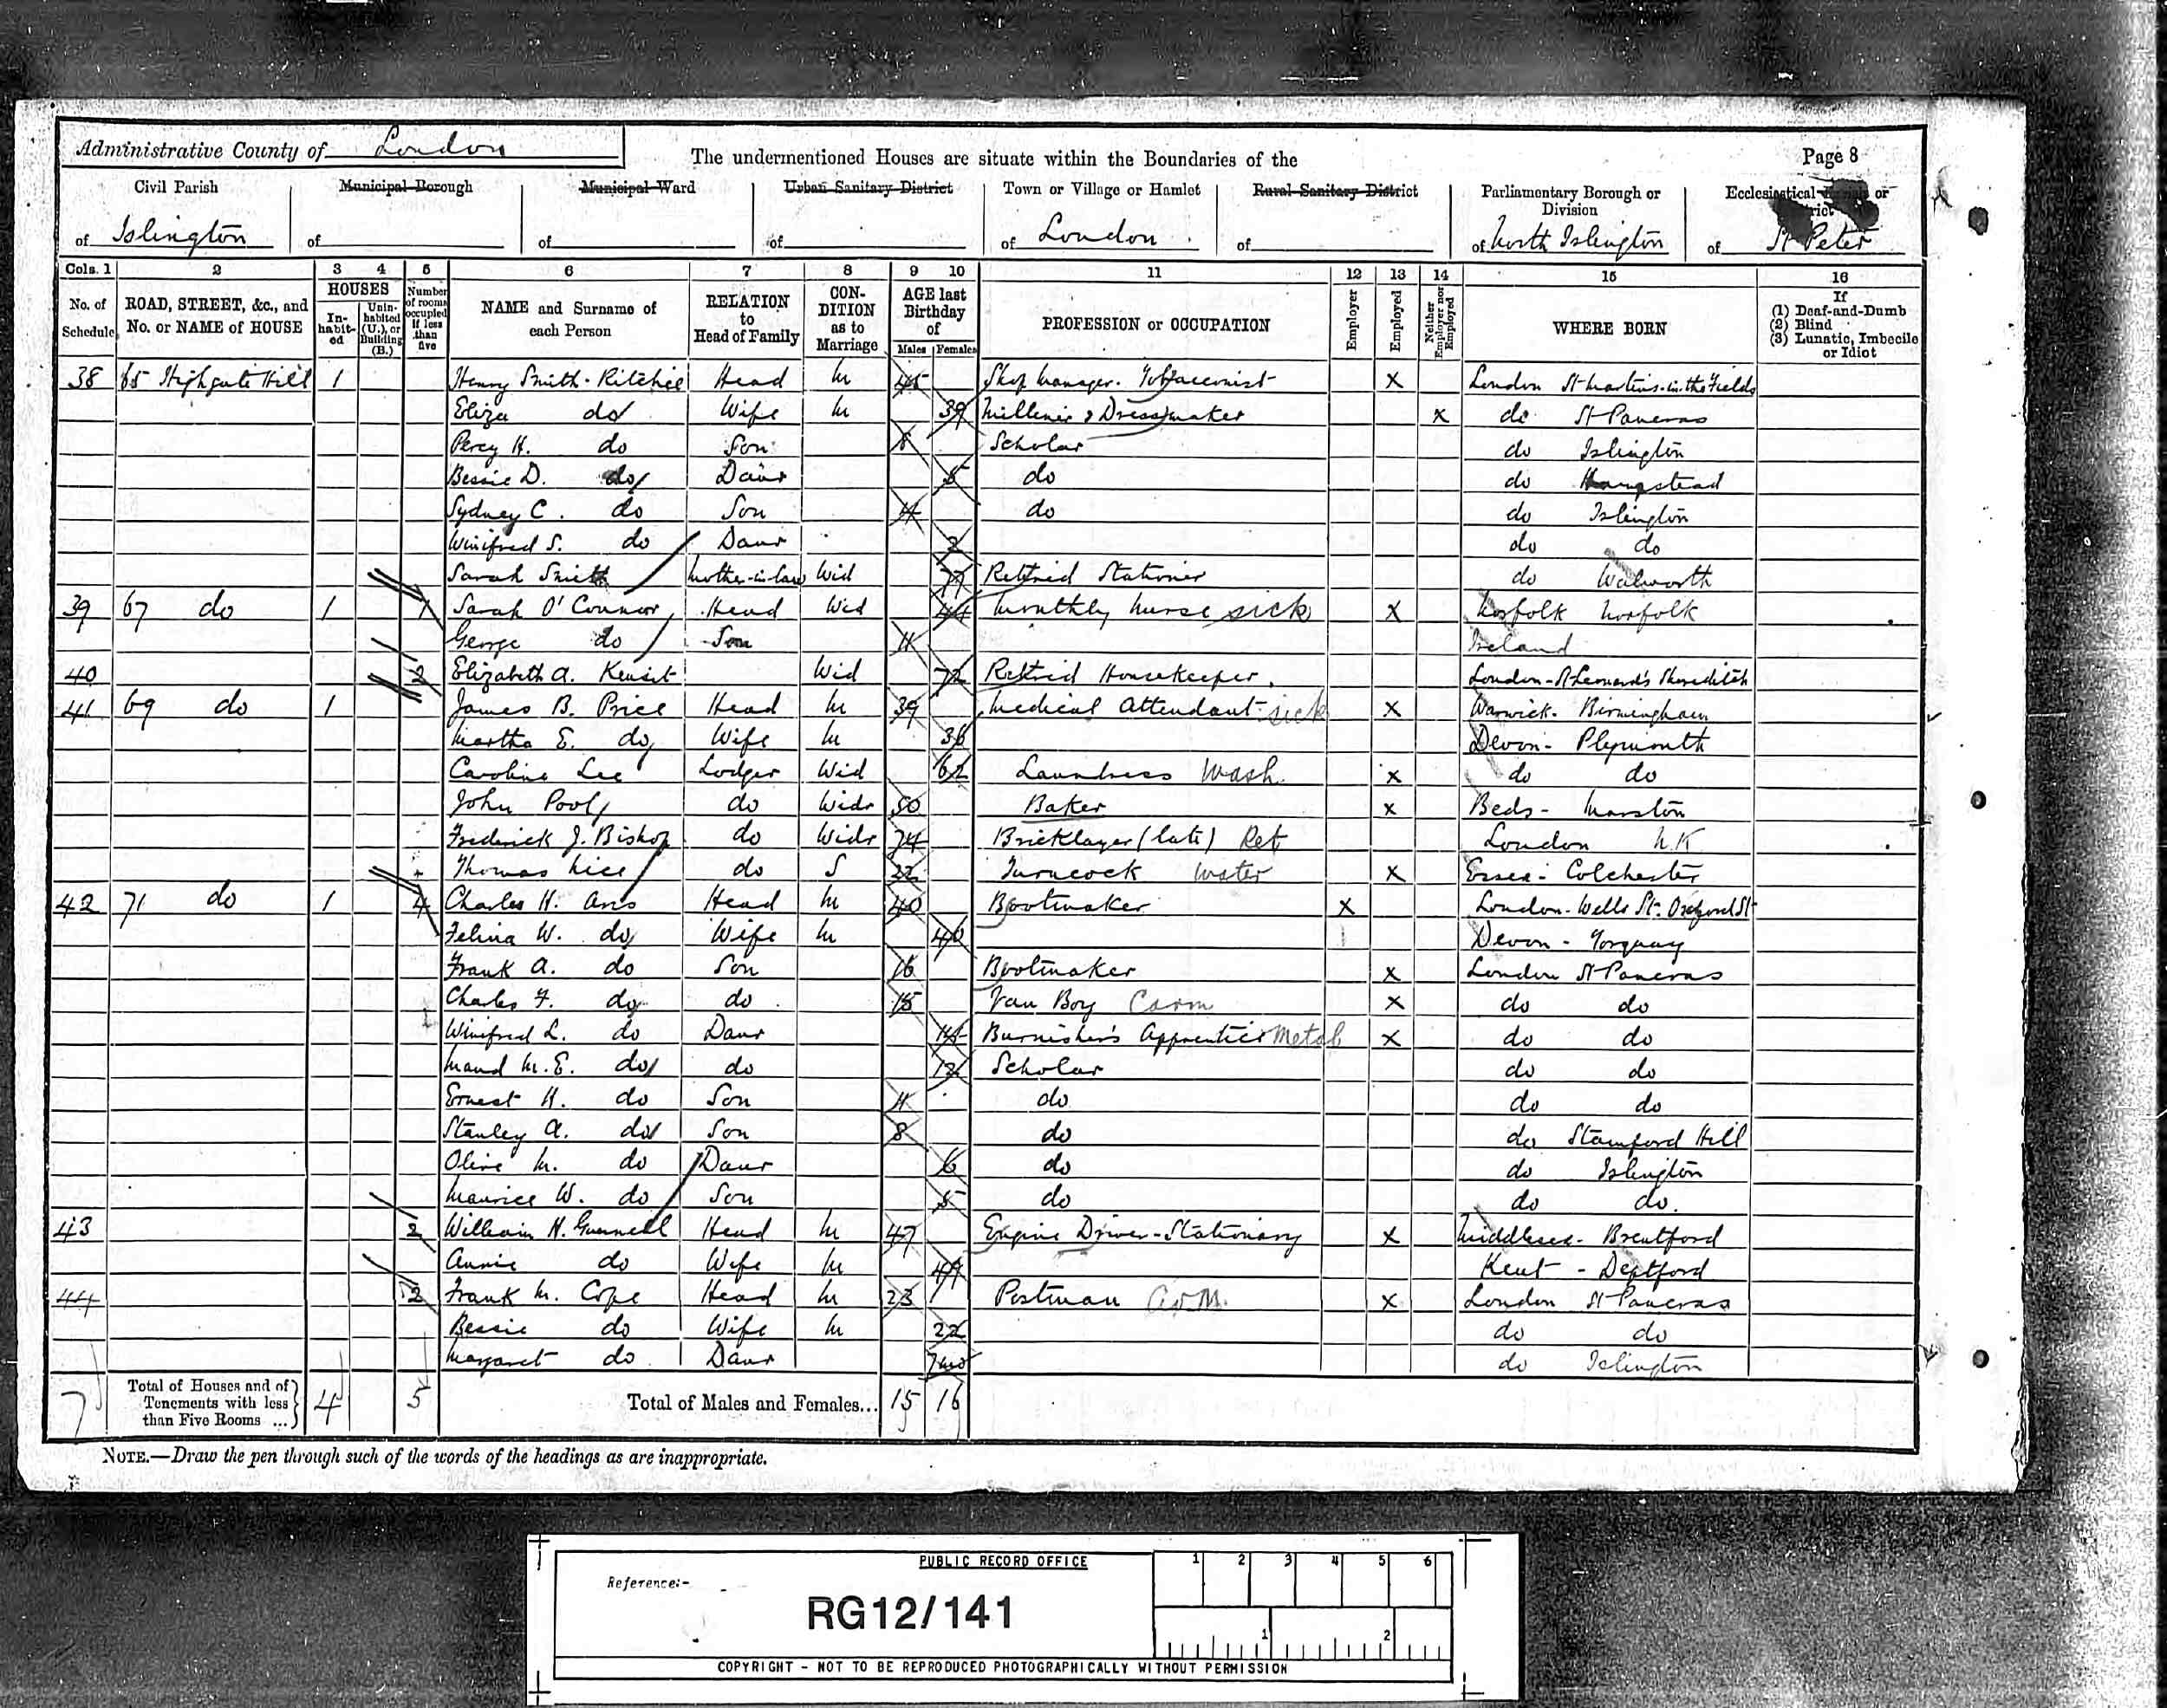 Administrative County of London
The undermentioned Houses are situate within the Boundaries of the
Page 8
Civil Parish Municipal Borough Municipal Ward Urban Sanitary District Town or Village or Hamlet Rural Sanitary District Parliamentary Borough or Division Ecclesiastical or
of Islington of of of of London of of North Islington of St Peter
Cols. 1 2 3 4 5 6 7 8 9 10 11 12 13 14 15 16
No. of Schedule ROAD, STREET, &c., and No. or NAME of HOUSE HOUSES In-habit-ed Unin-habited (U.), or Building (B.) Number of rooms occupied if less than five NAME and Surname of each Person RELATION to Head of Family CON-DITION as to Marriage AGE last Birthday of Males Females PROFESSION or OCCUPATION Employer Employed Neither Employer nor Employed WHERE BORN If (1) Deaf-and-Dumb (2) Blind (3) Lunatic, Imbecile or Idiot
38 65 Highgate Hill 1 Henry Smith-Ritchie Head M 45 Shop Manager. Tobacconist X London St Martins-in-the Fields
Eliza do Wife M 39 Milliner & Dressmaker X do St Pancras
Percy H. do Son 8 Scholar do Islington
Bessie D. do Daur 5 do do Hampstead
Sydney C. do Son 4 do do Islington
Winifred S. do Daur 2 do do
Sarah Smith Mother-in-law Wid 77 Retired Stationer do Walworth
39 67 do 1 Sarah O'Connor Head Wid 44 Monthly Nurse sick X Norfolk Norfolk
George do Son 11 Ireland
40 2 Elizabeth A. Kensit Wid 72 Retired Housekeeper. London-St Leonard's Shoreditch
41 69 do 1 James B. Price Head M 39 Medical Attendant sick X Warwick-Birmingham
Martha E. do Wife M 36 Devon-Plymouth
Caroline Lee Lodger Wid 62 Laundress Wash X do do
John Pool do Widr 50 Baker X Beds-Marston
Frederick J. Bishop do Widr 74 Bricklayer (late) Ret London N.K
Thomas do S 22 Turncock Water X Essex-Colchester
42 71 do 1 4 Charles H. Head M 40 Bootmaker X London-Wells St. Oxford St
Felina W. do Wife M 40 Devon-Torquay
Frank A. do Son 16 Bootmaker X London St Pancras
Charles F. do do 15 Van Boy Carm X do do
Winifred L. do Daur 14 Burnisher's Apprentice Metal X do do
Maud M.E. do do 12 Scholar do do
Ernest H. do Son 11 do do do
Stanley A. do Son 8 do do Stamford Hill
Olive M. do Daur 6 do do Islington
Maurice W. do Son 5 do do do.
43 2 William H. Gunnell Head M 47 Engine Driver-Stationary X Middlesex-Brentford
Annie do Wife M 49 Kent-Deptford
44 2 Frank M. Cope Head M 23 Postman X London St Pancras
Bessie do Wife M 22 do do
Margaret do Daur 7mo do Islington
7 Total of Houses and of Tenements with less than Five Rooms ... 4 5 Total of Males and Females... 15 16
NOTE.—Draw the pen through such of the words of the headings as are inappropriate.
PUBLIC RECORD OFFICE 1 2 3 4 5 6
Reference:-
RG12/141
1 2
COPYRIGHT - NOT TO BE REPRODUCED PHOTOGRAPHICALLY WITHOUT PERMISSION